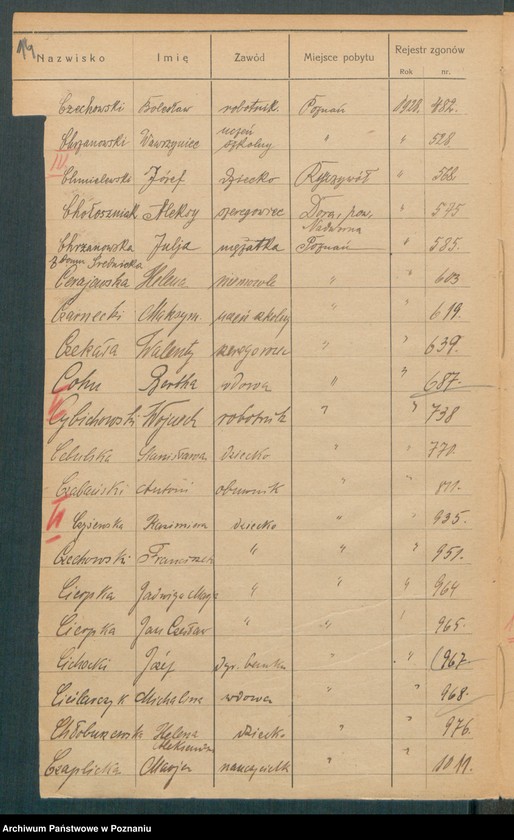 Nazwisko Imię Zawód Miejsce pobytu Rejestr zgonów
Rok nr.
Czechowski Bolesław robotnik Poznań 1920. 482.
Chrzanowski Wawrzyniec uczeń szkolny " " 528.
IV
Chmielewski Józef dziecko " 568.
Chołoszniak Aleksy szeregowiec Dora, pow. Nadwórna " 545
Chrzanowska Julja mężatka Poznań " 585.
z domu Średnicka
Cerajewska Helena niemowlę " 603
Czarnecki Maksym. uczeń szkolny " " 619.
Czekała Walenty szeregowiec " " 639.
Cohn Bertha wdowa " " 687.
Cybichowski Wojciech robotnik " " 738
Cebulska Stanisława dziecko " " 770.
Czabański Antoni " " 811.
Czyżewska Kazimiera dziecko " " 935.
Czechowski Franciszek " " " 951.
Cieopka Jadwiga Marja " " " 964
Cieopka Jan Czesław " " " 965.
Cichocki Józef dyr. banku " " 967
Cieślarczyk Michalina wdowa " " 968.
Chłobuszewska Helena Aleksandra dziecko " " 976.
Czaplicka Marja nauczycielk " " 1011.
Archiwum Państwowe w Poznaniu